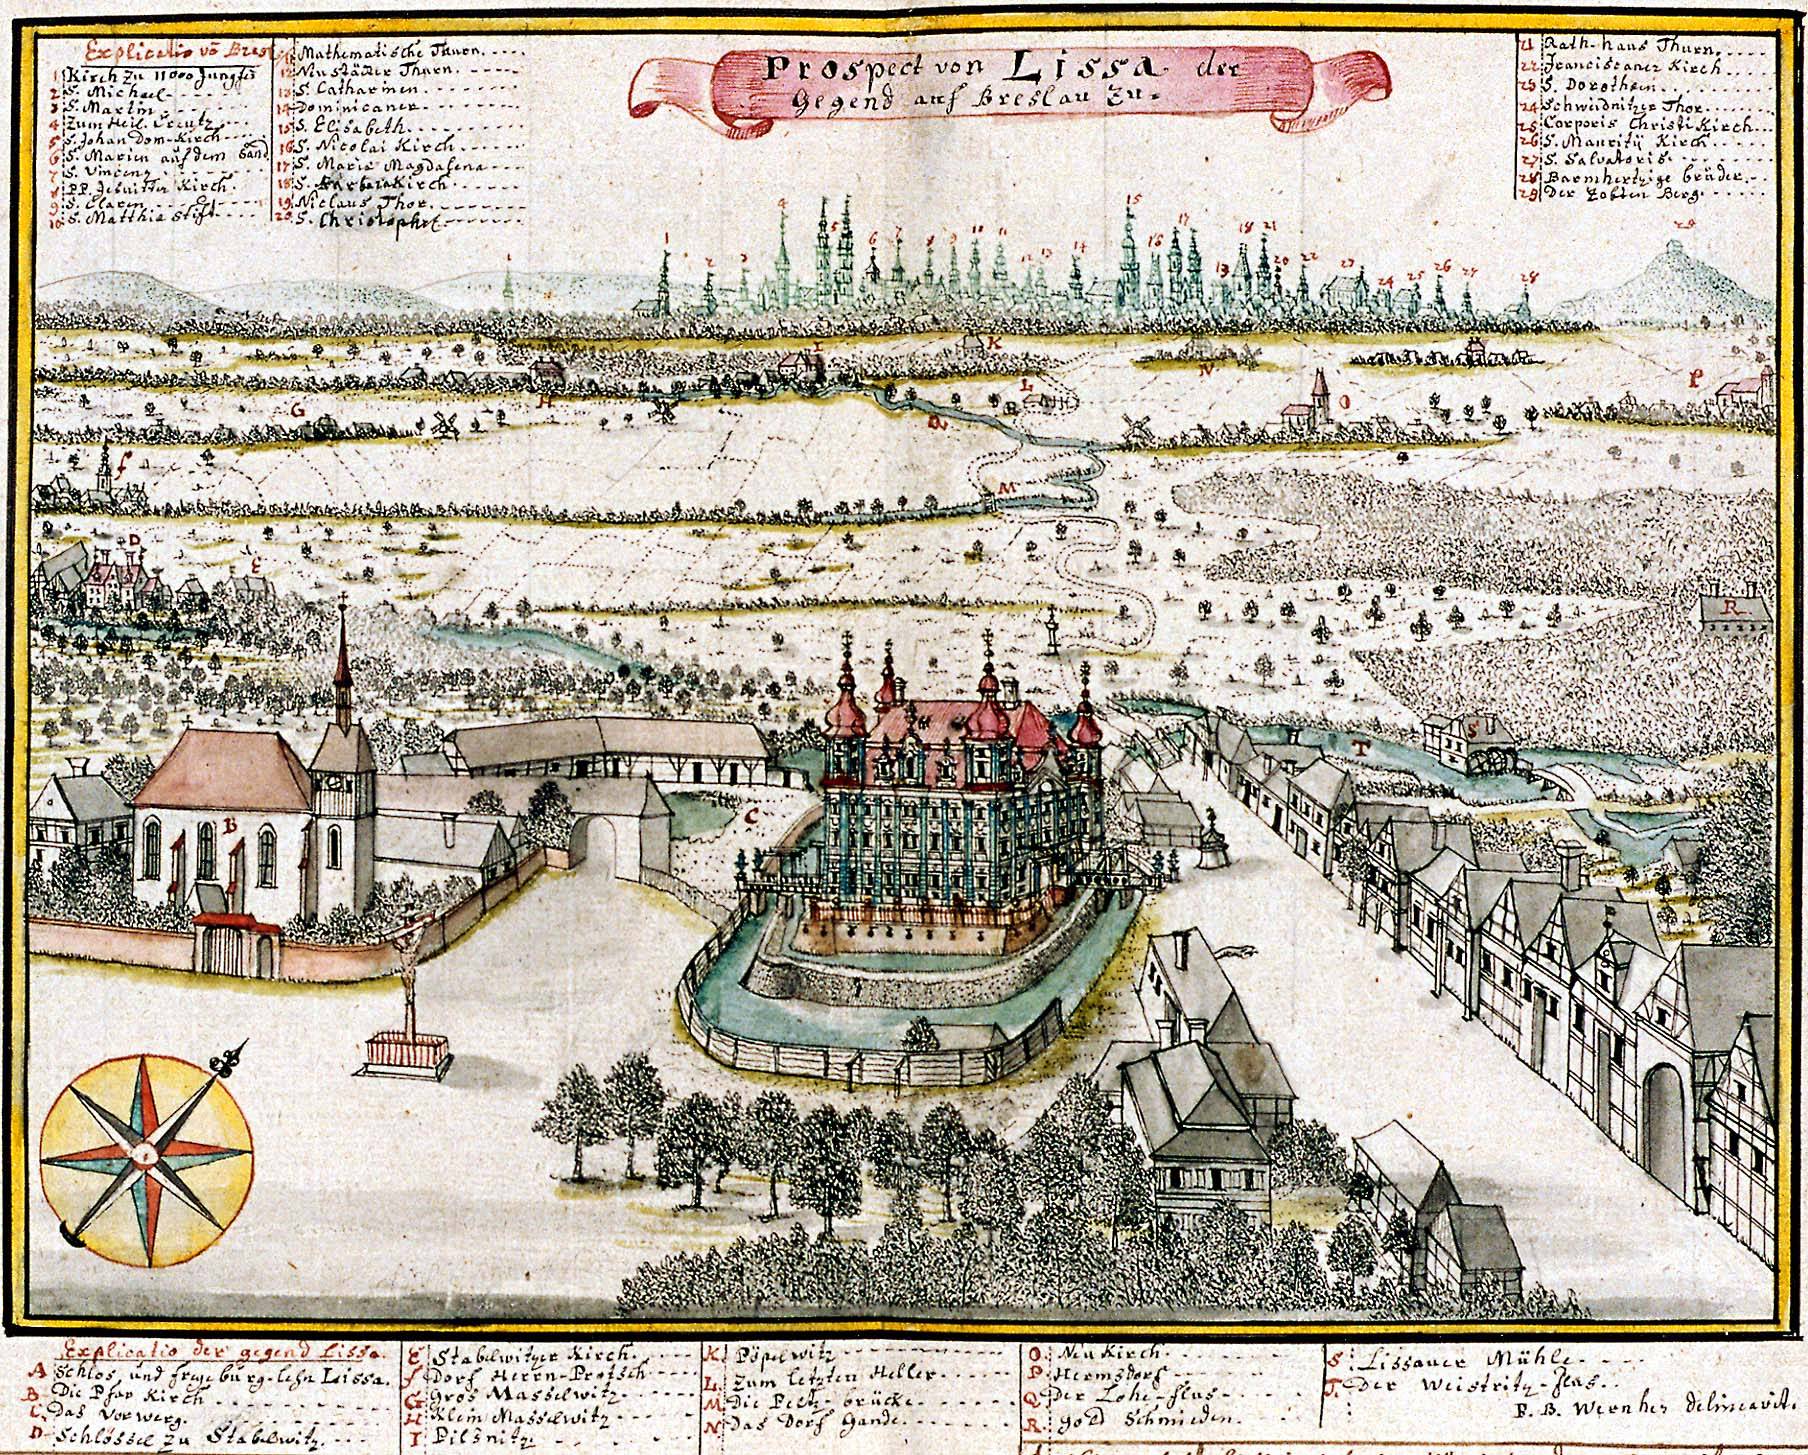 Prospect von Lissa der
Gegend auf Breslau zu.
Explicatio vō Bresl
1 Kirch zu 11000 Jungfer
2 S. Michael
3 S. Martin
4 Zum Heil. Creutz
5 S. Johan Dom-Kirch
6 S. Marien auf dem Sand
7 S. Vincenz
8 P.P. Jesuitter Kirch.
9 S. Claren
10 S. Matthia Stift
11 Mathematische Thurn.
12 Nustädter Thurn.
13 S. Catharinen
14 Dominicaner
15 S. Elisabeth
16 S. Nicolai Kirch
17 S. Maria Magdalena
18 S. Barbara Kirch
19 Niclaus Thor.
20 S. Christophel
21 Rath-haus Thurn.
22 Franciscaner Kirch
23 S. Dorothein
24 Schwidnitzer Thor
25 Corporis Christi Kirch
26 S. Mauritij Kirch
27 S. Salvatoris
28 Barmhertzige brüder.
29 Der Zobten Berg.
Explicatio der gegend Lissa.
A Schlos und freye burg-lehn Lissa.
B Die Pfar Kirch
C. Das Vorwerg.
D Schlössel zu Stabelwitz.
E Stabelwitzer Kirch
f Dorf Herrn-Protsch
G Gros Masselwitz
H Klein Masselwitz
I Pilsnitz
K. Pöpelwitz
L. Zum letzten Heller
M Die Pech-brücke
N Das Dorf Gande
O. Neu Kirch
P Hermsdorf
Q Der Lohe-flus
R gold Schmieden.
S Lissauer Mühle
T. Der Weistritz-flus
F. B. Wernher delineavit.